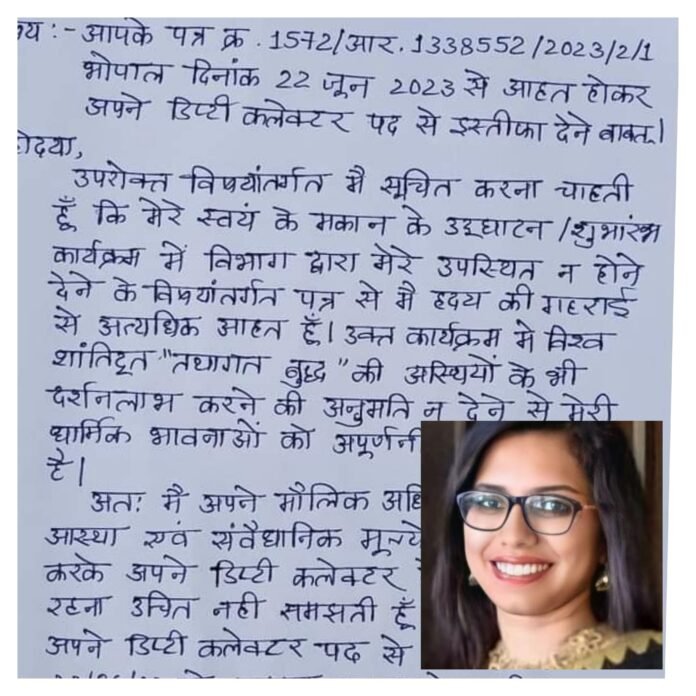 य :- आपके पत्र क्र. 1572/आर. 1338552/2023/2/1
भोपाल दिनांक 22 जून 2023 से आहत होकर
अपने डिप्टी कलेक्टर पद से इस्तीफा देने बाबत्।
होदया,
उपरोक्त विषयांतर्गत मै सूचित करना चाहती
हूँ कि मेरे स्वयं के मकान के उद्घाटन /शुभारंभ
कार्यक्रम में विभाग द्वारा मेरे उपस्थित न होने
देने के विषयांतर्गत पत्र से मै हृदय की गहराई
से अत्यधिक आहत हूँ। उक्त कार्यक्रम मे विश्व
शांतिदूत "तथागत बुद्ध" की अस्थियों के भी
दर्शनलाभ करने की अनुमति न देने से मेरी
धार्मिक भावनाओं को अपूर्णनी
है।
अतः मै अपने मौलिक अधि
आस्था एवं संवैधानिक मूल्य
करके अपने डिप्टी कलेक्टर
रहना उचित नही समझती हूँ
अपने डिप्टी कलेक्टर पद से